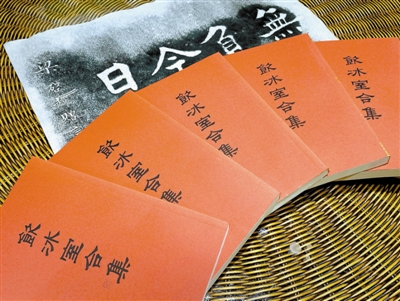 無負今日
飲冰室合集
飲冰室合集
飲冰室合集
飲冰室合集
飲冰室合集